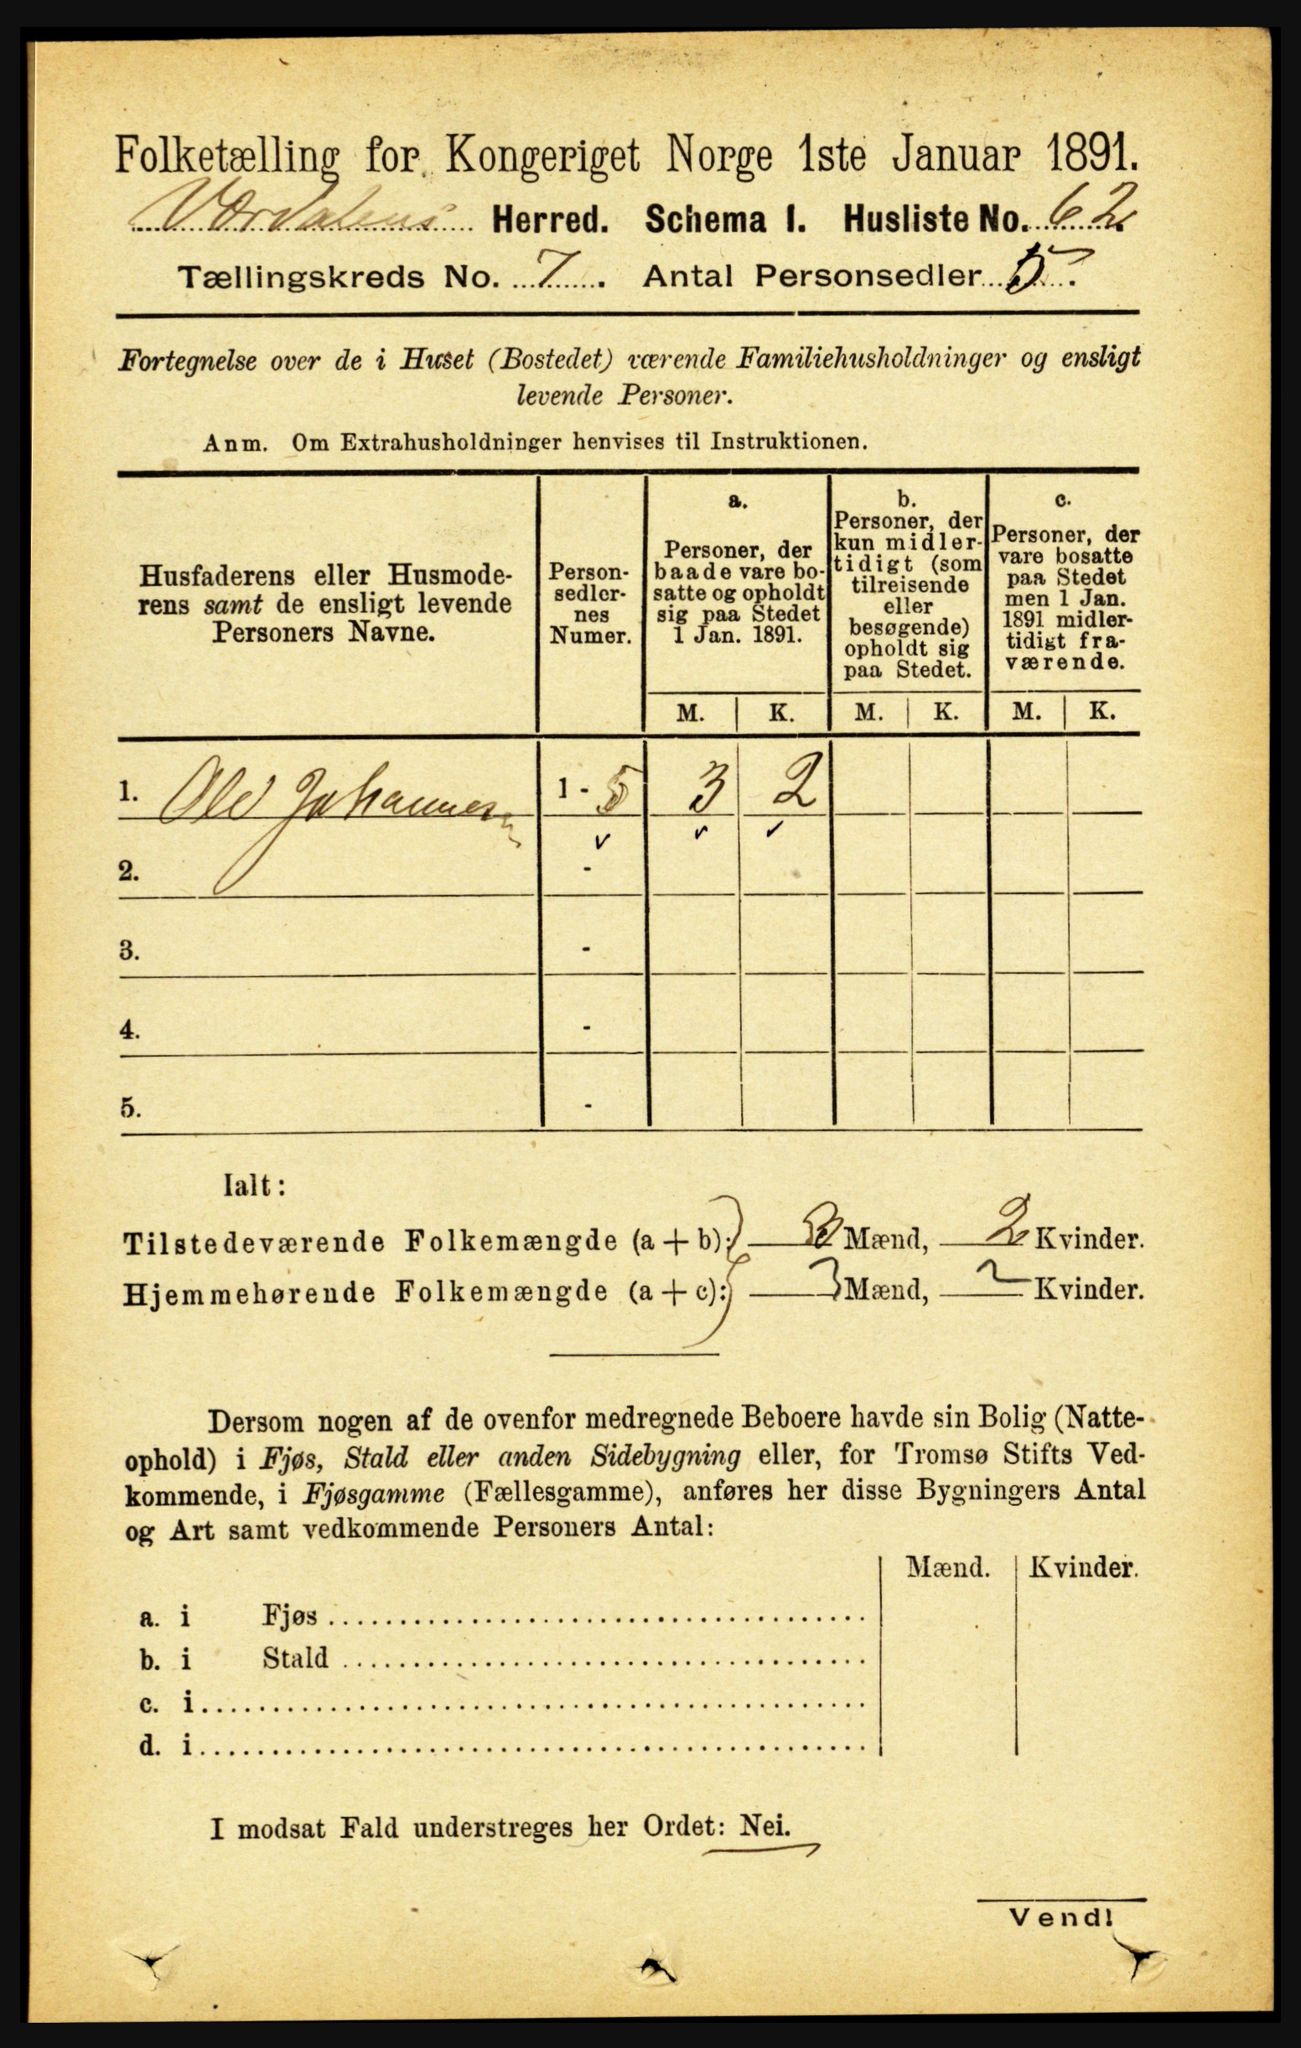 Folketælling for Kongeriget Norge 1ste Januar 1891.
Værdalens Herred. Schema I. Husliste No. 62
Tællingskreds No. 7. Antal Personsedler 5.
Fortegnelse over de i Huset (Bostedet) værende Familiehusholdninger og ensligt
levende Personer.
Anm. Om Extrahusholdninger henvises til Instruktionen.
Husfaderens eller Husmode-
rens samt de ensligt levende
Personers Navne.
Person-
sedler-
nes
Numer.
a.
Personer, der
baade vare bo-
satte og opholdt
sig paa Stedet
1 Jan. 1891.
b.
Personer, der
kun midler-
tidigt (som
tilreisende
eller
besøgende)
opholdt sig
paa Stedet.
c.
Personer, der
vare bosatte
paa Stedet
men 1 Jan.
1891 midler-
tidigt fra-
værende.
M. K. M. K. M. K.
1. Ole Johannesen 1 - 5 3 2
2. -
3. -
4. -
5. -
Ialt:
Tilstedeværende Folkemængde (a + b): 3 Mænd, 2 Kvinder.
Hjemmehørende Folkemængde (a + c): 3 Mænd, 2 Kvinder.
Dersom nogen af de ovenfor medregnede Beboere havde sin Bolig (Natte-
ophold) i Fjøs, Stald eller anden Sidebygning eller, for Tromsø Stifts Ved-
kommende, i Fjøsgamme (Fællesgamme), anføres her disse Bygningers Antal
og Art samt vedkommende Personers Antal:
Mænd. Kvinder.
a. i Fjøs
b. i Stald
c. i
d. i
I modsat Fald understreges her Ordet: Nei.
Vend!